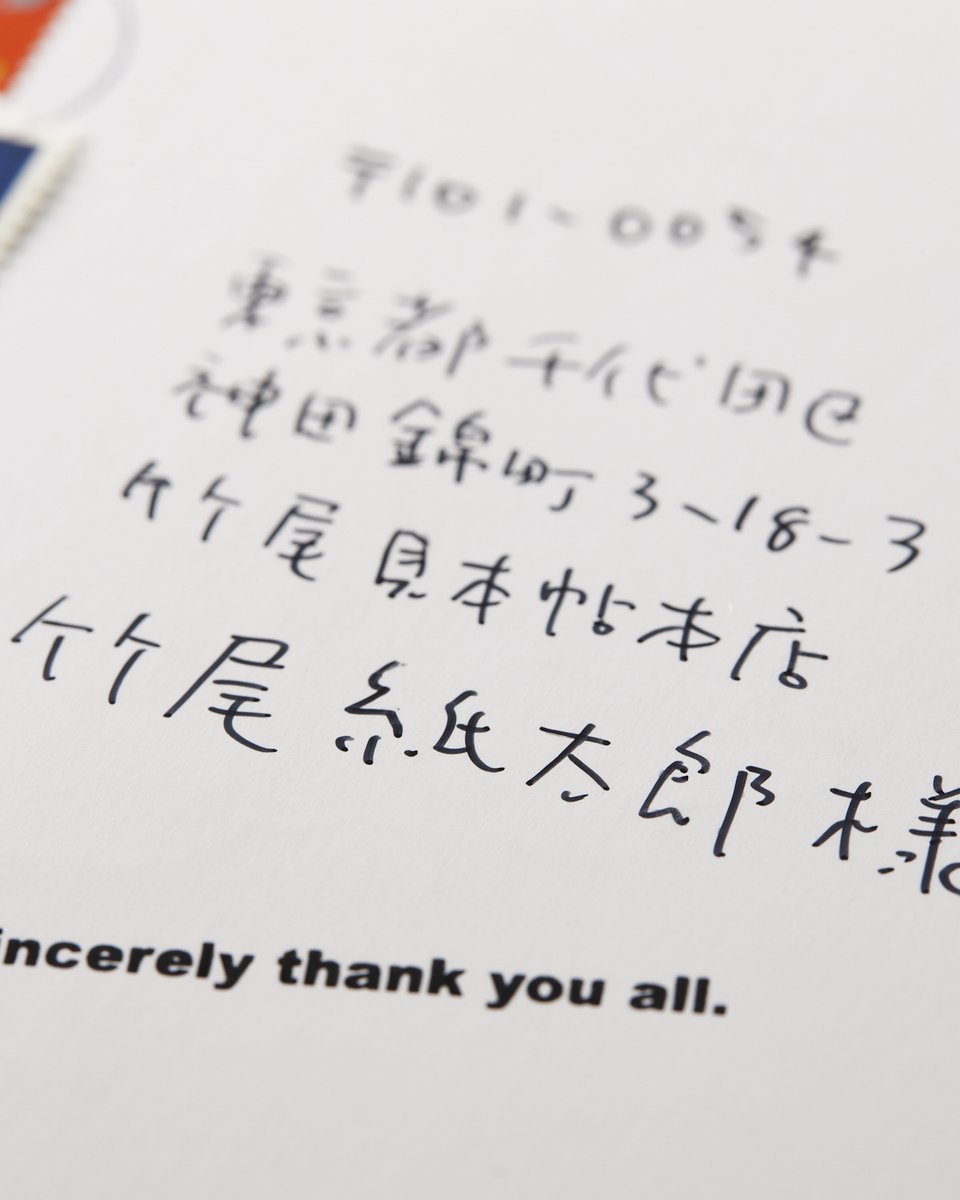 〒101-0054
東京都千代田区
神田錦町3-18-3
竹尾見本帖本店
竹尾紙太郎様
incerely thank you all.